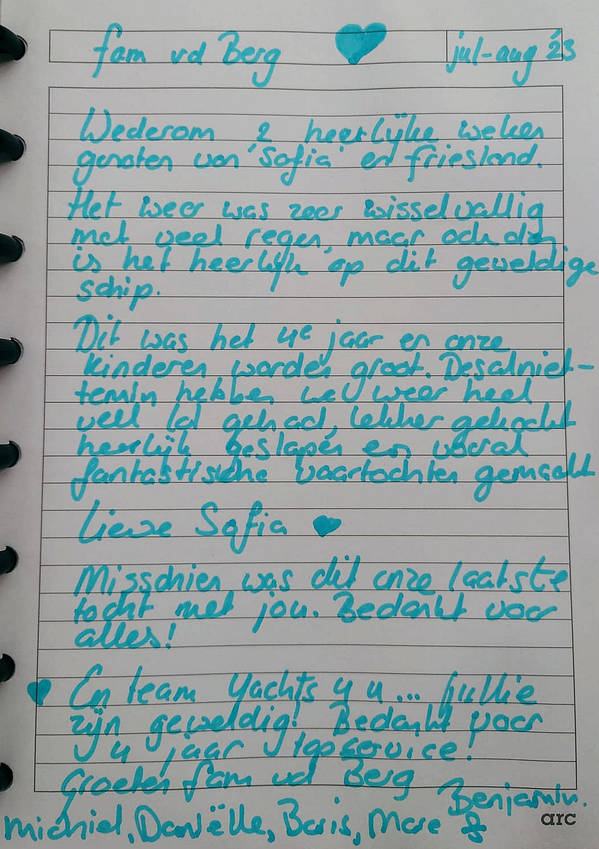 fam vd Berg jul-aug '23
Wederom 2 heerlijke weken
genoten van 'Sofia' en friesland.
Het weer was zeer wisselvallig
met veel regen, maar ook dan
is het heerlijk op dit geweldige
schip.
Dit was het 4e jaar en onze
kinderen worden groot. Desalniet-
temin hebben we weer heel
veel lol gehad, lekker gekookt
heerlijk geslapen en vooral
fantastische vaartochten gemaakt
Lieve Sofia
Misschien was dit onze laatste
tocht met jou. Bedankt voor
alles!
En team Yachts 4 u... Jullie
zijn geweldig! Bedankt voor
4 jaar topservice!
Groeten fam vd Berg
Michiel, Daniëlle, Boris, Marc & Benjamin.
arc